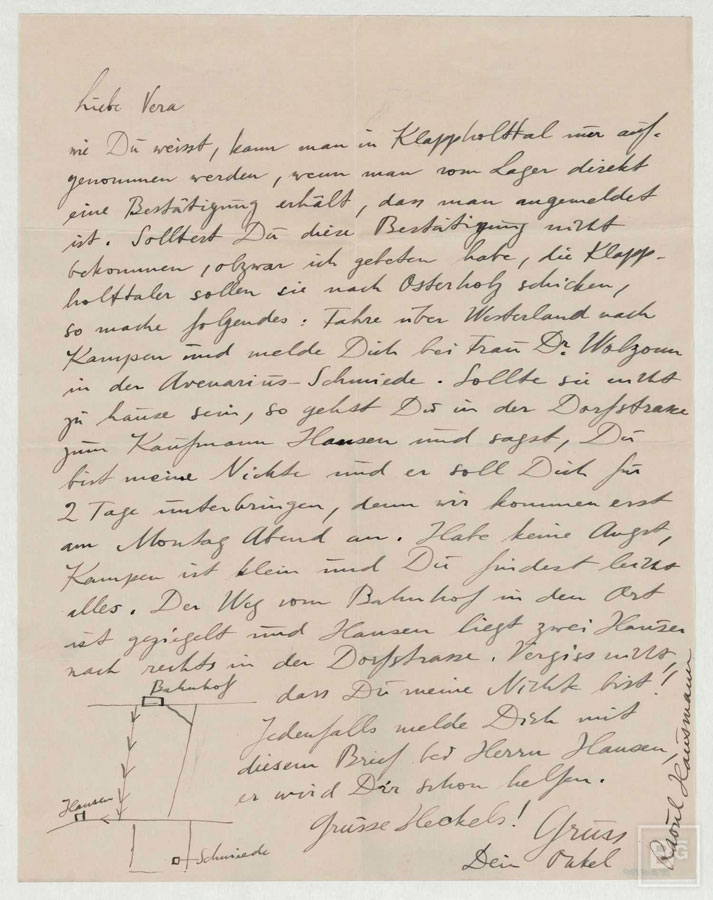 Liebe Vera
wie Du weisst, kann man in Klappholttal nur auf-
genommen werden, wenn man vom Lager direkt
eine Bestätigung erhält, dass man angemeldet
ist. Solltest Du diese Bestätigung nicht
bekommen, obzwar ich gebeten habe, die Klapp-
holttaler sollen sie nach Osterholz schicken,
so mache folgendes: Fahre über Westerland nach
Kampen und melde Dich bei Frau Dr. Wolzonn
in der Avenarius-Schmiede. Sollte sie nicht
zu hause sein, so gehst Du in der Dorfstrasse
zum Kaufmann Hansen und sagst, Du
bist meine Nichte und er soll Dich für
2 Tage unterbringen, denn wir kommen erst
am Montag Abend an. Habe keine Angst,
Kampen ist klein und Du findest leicht
alles. Der Weg vom Bahnhof in den Ort
ist geziegelt und Hansen liegt zwei Häuser
nach rechts in der Dorfstrasse. Vergiss nicht,
dass Du meine Nichte bist!
Jedenfalls melde Dich mit
diesem Brief bei Herrn Hansen,
er wird Dir schon helfen.
Grüsse Heckels! Gruss
Dein Onkel
Raoul Hausmann
Bahnhof
Hansen
Schmiede